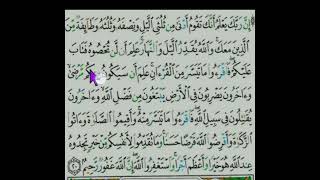 إِنَّ رَبَّكَ يَعْلَمُ أَنَّكَ تَقُومُ أَدْنَىٰ مِن ثُلُثَىِ ٱلَّيْلِ وَنِصْفَهُۥ وَثُلُثَهُۥ وَطَآئِفَةٌ مِّنَ
ٱلَّذِينَ مَعَكَ ۚ وَٱللَّهُ يُقَدِّرُ ٱلَّيْلَ وَٱلنَّهَارَ ۚ عَلِمَ أَن لَّن تُحْصُوهُ فَتَابَ
عَلَيْكُمْ ۖ فَٱقْرَءُوا۟ مَا تَيَسَّرَ مِنَ ٱلْقُرْءَانِ ۚ عَلِمَ أَن سَيَكُونُ مِنكُم مَّرْضَىٰ ۙ
وَءَاخَرُونَ يَضْرِبُونَ فِى ٱلْأَرْضِ يَبْتَغُونَ مِن فَضْلِ ٱللَّهِ ۙ وَءَاخَرُونَ
يُقَٰتِلُونَ فِى سَبِيلِ ٱللَّهِ ۖ فَٱقْرَءُوا۟ مَا تَيَسَّرَ مِنْهُ ۚ وَأَقِيمُوا۟ ٱلصَّلَوٰةَ وَءَاتُوا۟
ٱلزَّكَوٰةَ وَأَقْرِضُوا۟ ٱللَّهَ قَرْضًا حَسَنًا ۚ وَمَا تُقَدِّمُوا۟ لِأَنفُسِكُم مِّنْ خَيْرٍ تَجِدُوهُ
عِندَ ٱللَّهِ هُوَ خَيْرًا وَأَعْظَمَ أَجْرًا ۚ وَٱسْتَغْفِرُوا۟ ٱللَّهَ ۖ إِنَّ ٱللَّهَ غَفُورٌ رَّحِيمٌۢ ٢٠